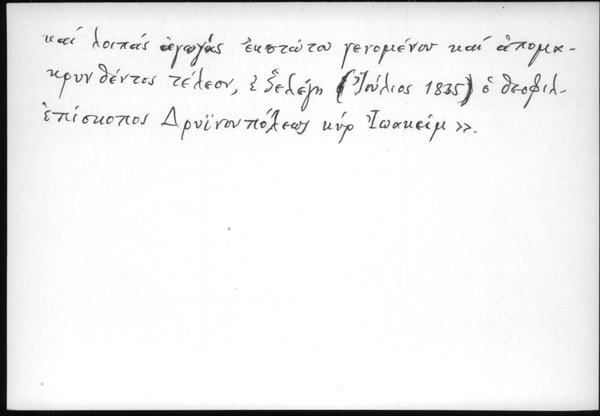 καί λοιπάς ἀγωγάς ἐκστάτου γενομένου καί ἀπομα-
κρυνθέντος τέλεον, ἐξελέγη (Ἰούλιος 1835) ὁ θεοφιλ.
ἐπίσκοπος Δρυϊνουπόλεως κύρ Ἰωακείμ».